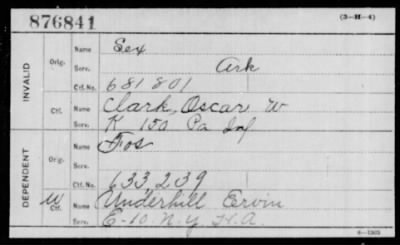 876841 (3-H-4)
INVALID
Orig. Name Sex
Serv. Ark
Ctf. No. 681801
Ctf. Name Clark, Oscar W
Serv. K 150 Pa Inf
DEPENDENT
Orig. Name Fos
Serv.
Ctf. No. 633239
W Ctf. Name Underhill Ervin
Serv. E-10. N.Y. H.A.
6-1303